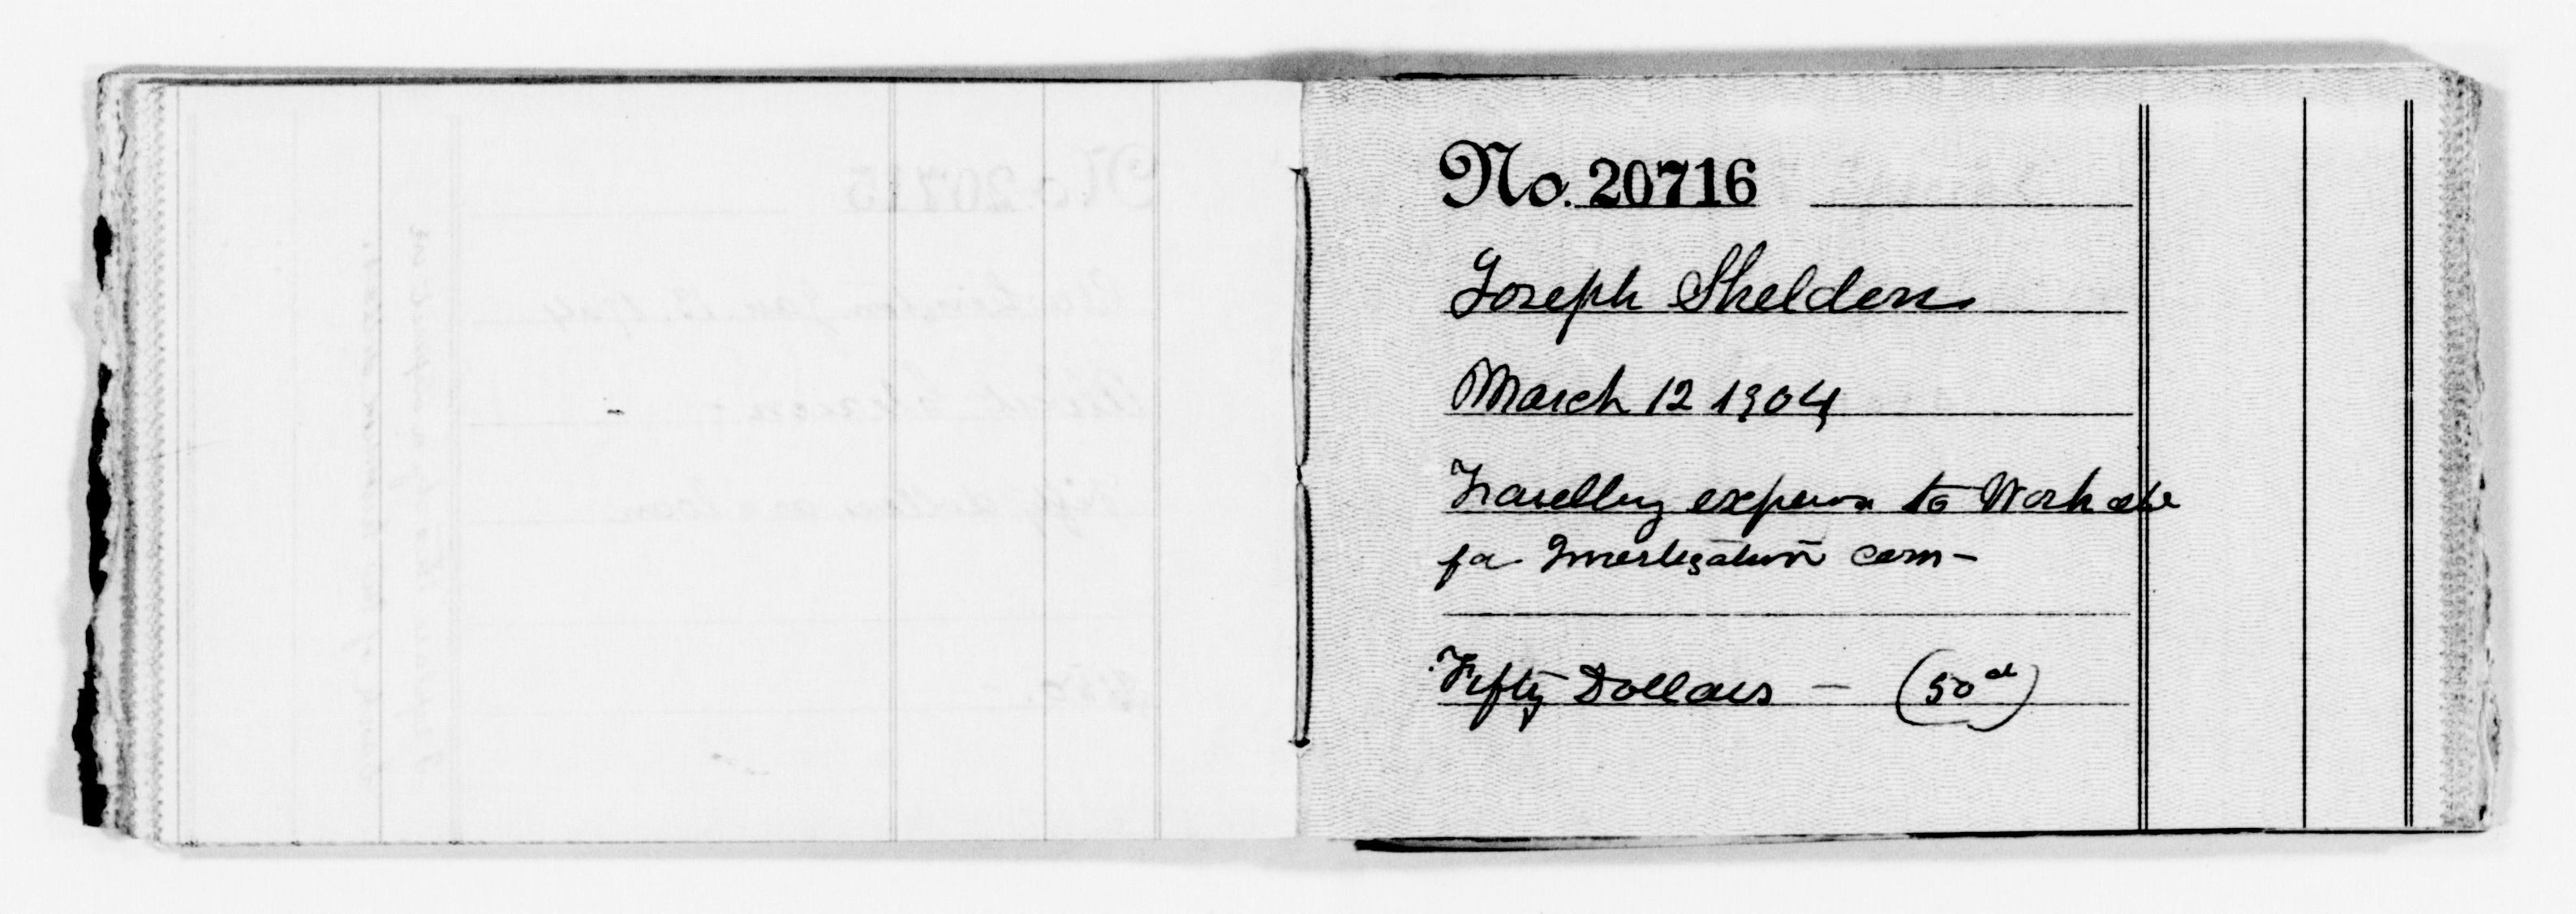 No. 20716
Joseph Sheldon
March 12 1904
Travelling expenses to Wash
for Investigation com-
Fifty Dollars — (50